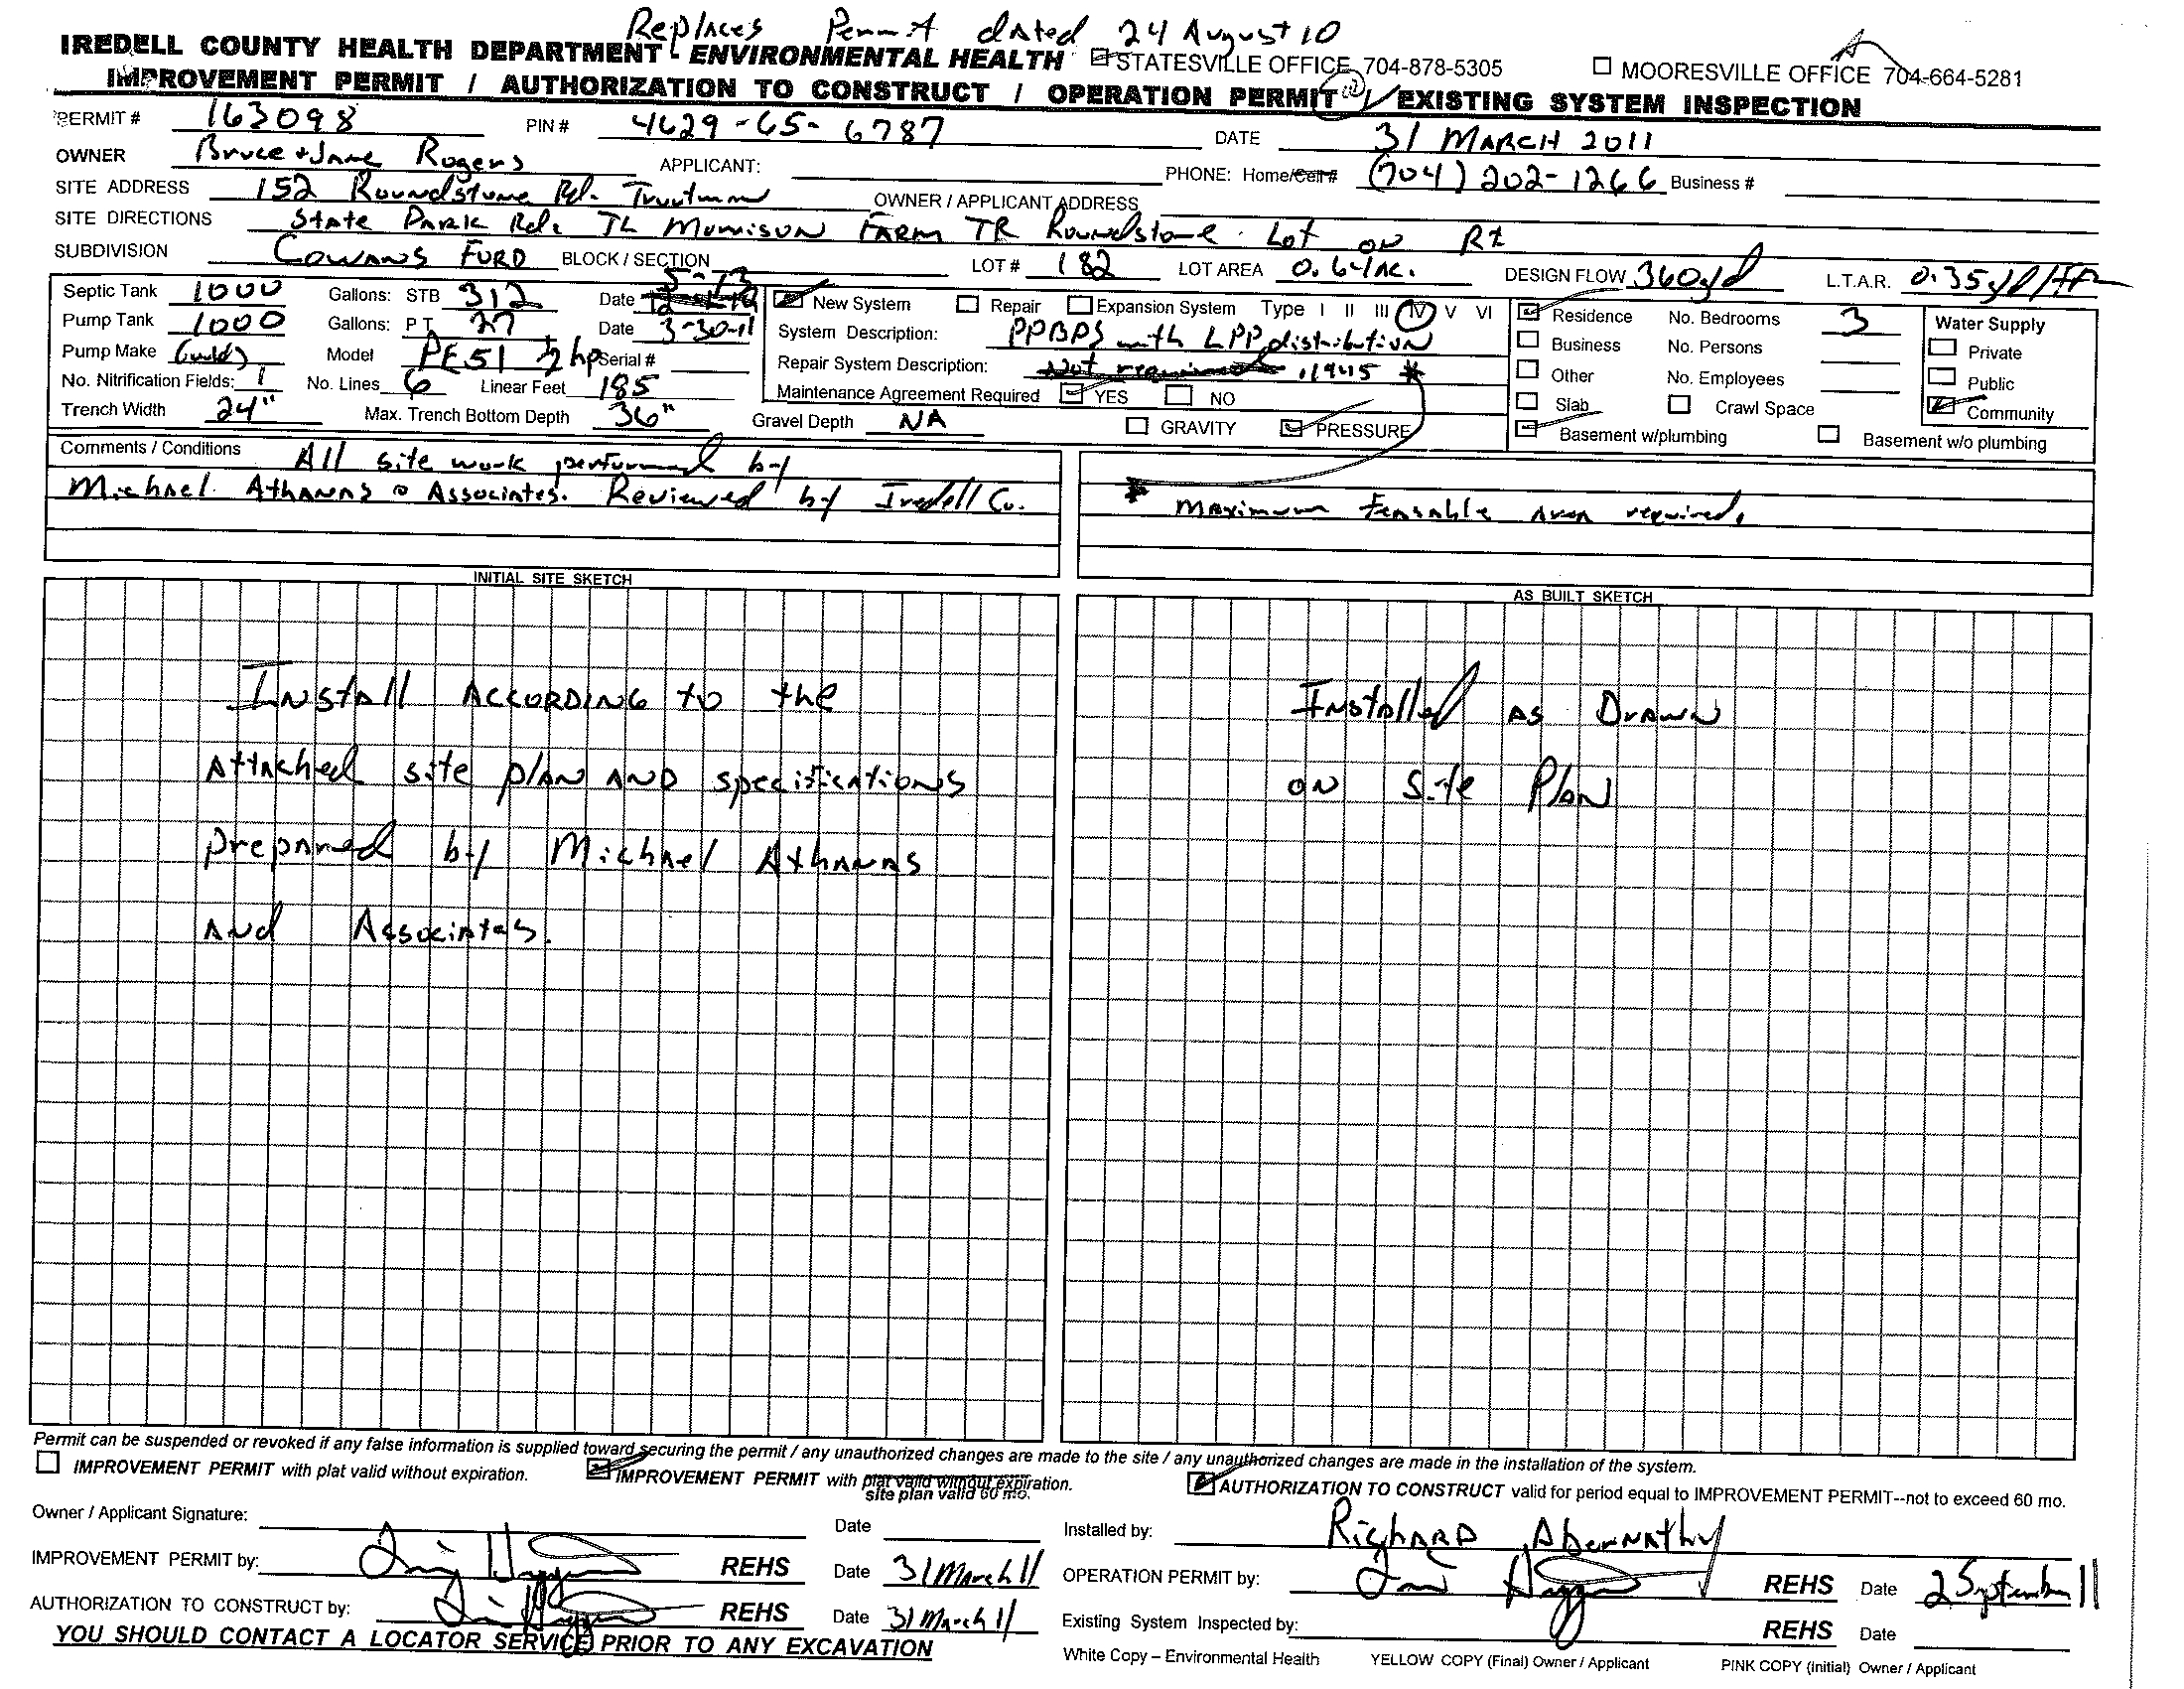 Replaces Permit dated 24 August 10
IREDELL COUNTY HEALTH DEPARTMENT - ENVIRONMENTAL HEALTH STATESVILLE OFFICE 704-878-5305 MOORESVILLE OFFICE 704-664-5281
IMPROVEMENT PERMIT / AUTHORIZATION TO CONSTRUCT / OPERATION PERMIT / EXISTING SYSTEM INSPECTION
PERMIT # 163098 PIN # 4629-65-6787 DATE 31 MARCH 2011
OWNER Bruce + Jane Rogers APPLICANT: PHONE: Home/Cell # (704) 202-1266 Business #
SITE ADDRESS 152 Roundstone Rd. Troutman OWNER / APPLICANT ADDRESS
SITE DIRECTIONS State Park Rd. TL Morrison Farm TR Roundstone. Lot on Rt
SUBDIVISION Cowans Ford BLOCK / SECTION LOT # 182 LOT AREA 0.64ac. DESIGN FLOW 360g/d L.T.A.R. 0.35g/d/ft²
Septic Tank 1000 Gallons: STB 312 Date 5-13
Pump Tank 1000 Gallons: PT 27 Date 3-30-11
Pump Make Goulds Model PE51 ½ hp Serial #
No. Nitrification Fields: 1 No. Lines 6 Linear Feet 185
Trench Width 24" Max. Trench Bottom Depth 36" Gravel Depth NA
New System Repair Expansion System Type I II III IV V VI
System Description: PPBPS with LPP distribution
Repair System Description: Not required .1945 *
Maintenance Agreement Required YES NO
GRAVITY PRESSURE
Residence No. Bedrooms 3
Business No. Persons
Other No. Employees
Slab Crawl Space
Basement w/plumbing Basement w/o plumbing
Water Supply
Private
Public
Community
Comments / Conditions All site work performed by
Michael Athanas & Associates. Reviewed by Iredell Co.
* Maximum feasable area required.
INITIAL SITE SKETCH
Install ACCORDING to the
Attached site plan AND specifications
prepared by Michael Athanas
and Associates.
AS BUILT SKETCH
Installed as Drawn
on Site Plan
Permit can be suspended or revoked if any false information is supplied toward securing the permit / any unauthorized changes are made to the site / any unauthorized changes are made in the installation of the system.
IMPROVEMENT PERMIT with plat valid without expiration. IMPROVEMENT PERMIT with plat valid without expiration. AUTHORIZATION TO CONSTRUCT valid for period equal to IMPROVEMENT PERMIT--not to exceed 60 mo.
site plan valid 60 mo.
Owner / Applicant Signature: Date
IMPROVEMENT PERMIT by: REHS Date 31 March 11
AUTHORIZATION TO CONSTRUCT by: REHS Date 31 March 11
YOU SHOULD CONTACT A LOCATOR SERVICE PRIOR TO ANY EXCAVATION
Installed by: Richard Abernathy
OPERATION PERMIT by: REHS Date 2 September 11
Existing System Inspected by: REHS Date
White Copy – Environmental Health YELLOW COPY (Final) Owner / Applicant PINK COPY (Initial) Owner / Applicant